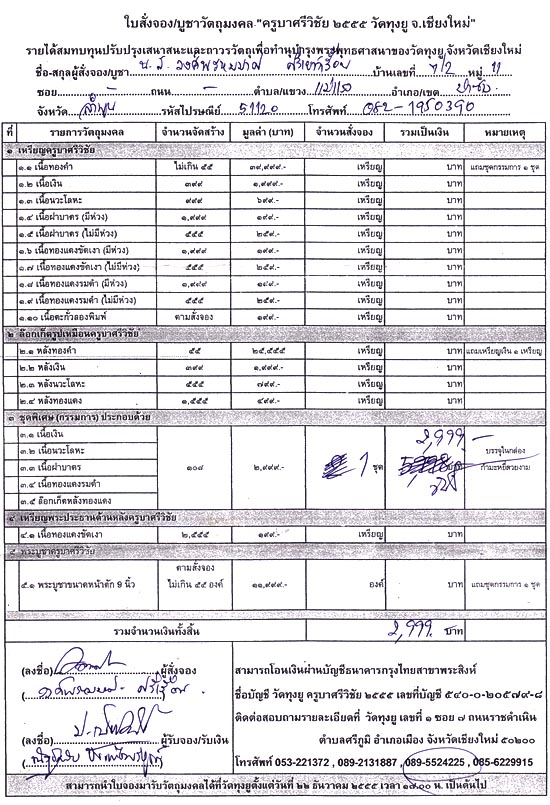 ใบสั่งจอง/บูชาวัตถุมงคล "ครูบาศรีวิชัย ๒๕๕๕ วัดทุงยู จ.เชียงใหม่"
รายได้สมทบทุนปรับปรุงเสนาสนะและถาวรวัตถุเพื่อทำนุบำรุงพระพุทธศาสนาของวัดทุงยู จังหวัดเชียงใหม่
ชื่อ-สกุลผู้สั่งจอง/บูชา บ้านเลขที่ 7/2 หมู่ 11
ซอย - ถนน - ตำบล/แขวง แม่แรง อำเภอ/เขต ป่าซาง
จังหวัด ลำพูน รหัสไปรษณีย์ 51120 โทรศัพท์ 082-1950390
ที่ รายการวัตถุมงคล จำนวนจัดสร้าง มูลค่า (บาท) จำนวนสั่งจอง รวมเป็นเงิน หมายเหตุ
๑ เหรียญครูบาศรีวิชัย
๑.๑ เนื้อทองคำ ไม่เกิน ๕๕ ๓๙,๙๙๙.- เหรียญ บาท แถมชุดกรรมการ ๑ ชุด
๑.๒ เนื้อเงิน ๓๙๙ ๑,๙๙๙.- เหรียญ บาท
๑.๓ เนื้อนวะโลหะ ๙๙๙ ๖๙๙.- เหรียญ บาท
๑.๔ เนื้อฝาบาตร (มีห่วง) ๑,๙๙๙ ๑๙๙.- เหรียญ บาท
๑.๕ เนื้อฝาบาตร (ไม่มีห่วง) ๕๕๕ ๒๕๙.- เหรียญ บาท
๑.๖ เนื้อทองแดงขัดเงา (มีห่วง) ๑,๙๙๙ ๑๙๙.- เหรียญ บาท
๑.๗ เนื้อทองแดงขัดเงา (ไม่มีห่วง) ๕๕๕ ๒๕๙.- เหรียญ บาท
๑.๘ เนื้อทองแดงรมดำ (มีห่วง) ๑,๙๙๙ ๑๙๙.- เหรียญ บาท
๑.๙ เนื้อทองแดงรมดำ (ไม่มีห่วง) ๕๕๕ ๒๕๙.- เหรียญ บาท
๑.๑๐ เนื้อตะกั่วลองพิมพ์ ตามสั่งจอง ๑๙๙.- เหรียญ บาท
๒ ล๊อกเก็ตรูปเหมือนครูบาศรีวิชัย
๒.๑ หลังทองคำ ๕๕ ๒๕,๕๕๕.- เหรียญ บาท แถมเหรียญเงิน ๑ เหรียญ
๒.๒ หลังเงิน ๓๙๙ ๑,๙๙๙.- เหรียญ บาท
๒.๓ หลังนวะโลหะ ๕๕๕ ๗๙๙.- เหรียญ บาท
๒.๔ หลังทองแดง ๑,๕๕๕ ๔๙๙.- เหรียญ บาท
๓ ชุดพิเศษ (กรรมการ) ประกอบด้วย
๓.๑ เนื้อเงิน 2,999 -
๓.๒ เนื้อนวะโลหะ บรรจุในกล่อง
๓.๓ เนื้อฝาบาตร ๑๐๘ ๒,๙๙๙.- 1 ชุด บาท กำมะหยี่สวยงาม
๓.๔ เนื้อทองแดงรมดำ
๓.๕ ล๊อกเก็ตหลังทองแดง
๔ เหรียญพระประธานด้านหลังครูบาศรีวิชัย
๔.๑ เนื้อทองแดงขัดเงา ๒,๕๕๕ ๑๙๙.- เหรียญ บาท
๕ พระบูชาครูบาศรีวิชัย
ตามสั่งจอง
๕.๑ พระบูชาขนาดหน้าตัก 9 นิ้ว ไม่เกิน ๕๕ องค์ ๑๑,๙๙๙.- องค์ บาท แถมชุดกรรมการ ๑ ชุด
รวมจำนวนเงินทั้งสิ้น 2,999. บาท
(ลงชื่อ) ผู้สั่งจอง
สามารถโอนเงินผ่านบัญชีธนาคารกรุงไทยสาขาพระสิงห์
ชื่อบัญชี วัดทุงยู ครูบาศรีวิชัย ๒๕๕๕ เลขที่บัญชี ๕๔๐-๐-๒๐๕๗๙-๘
ติดต่อสอบถามรายละเอียดที่ วัดทุงยู เลขที่ ๑ ซอย ๗ ถนนราชดำเนิน
(ลงชื่อ) ผู้รับจอง/รับเงิน
ตำบลศรีภูมิ อำเภอเมือง จังหวัดเชียงใหม่ ๕๐๒๐๐
โทรศัพท์ 053-221372 , 089-2131887 , 089-5524225 , 085-6229915
สามารถนำใบจองมารับวัตถุมงคลได้ที่วัดทุงยูตั้งแต่วันที่ ๒๒ ธันวาคม ๒๕๕๕ เวลา ๑๙.๐๐ น. เป็นต้นไป